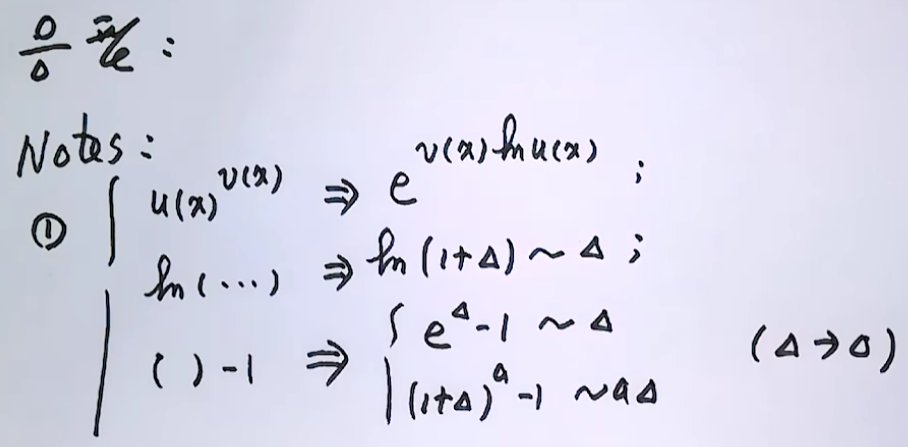 0/0 型:
Notes:
① { u(x)^{v(x)} ⇒ e^{v(x) ln u(x)} ;
ln(···) ⇒ ln(1+Δ) ~ Δ ;
( ) -1 ⇒ { e^Δ -1 ~ Δ
(1+Δ)^a -1 ~ aΔ (Δ→0)